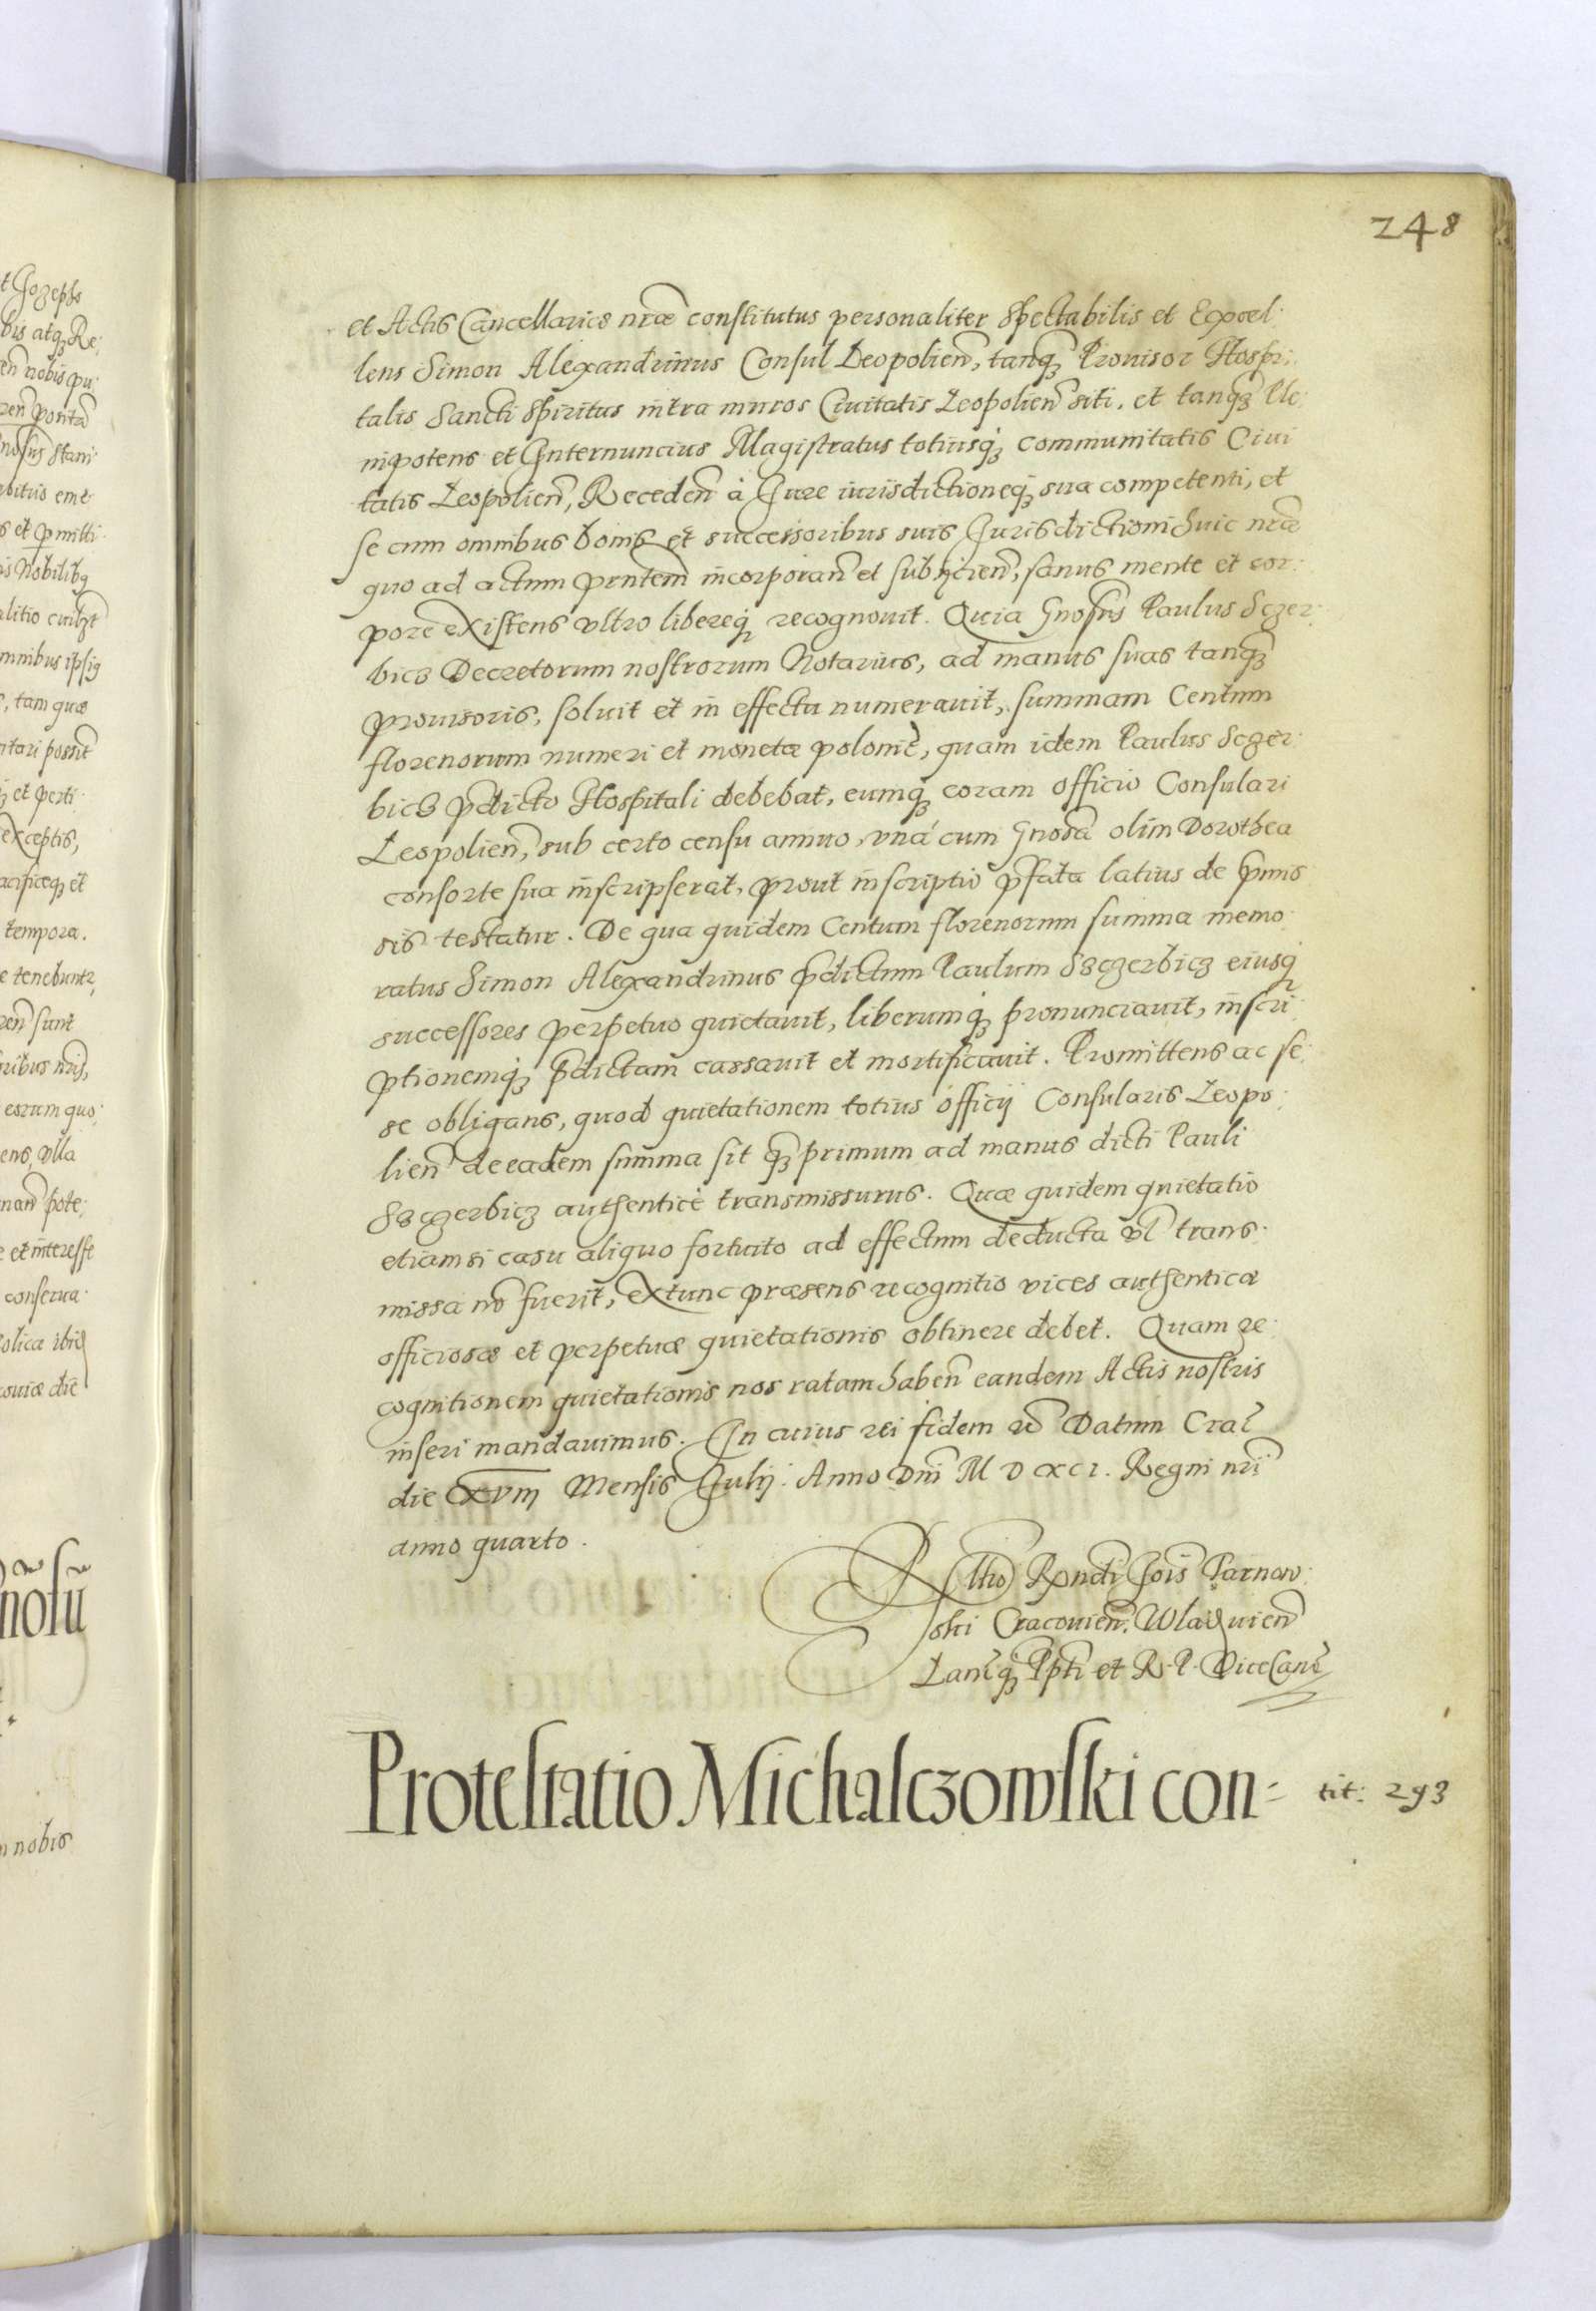 248
et Actis Cancellariæ nr̃æ constitutus personaliter Spectabilis et Excel:
lens Simon Alexandrinus Consul Leopolien̄, tanq̨ Prouisor Hospi:
talis Sancti Spiritus intra muros Ciuitatis Leopolien̄ siti, et tanq̨ Ple:
nipotens et Internuncius Magistratus totiusq̨ communitatis Ciui
tatis Leopolien̄, Receden̄ à Iure iurisdictioneq̨ sua competenti, et
se cum omnibus bonis et successoribus suis Iurisdictioni huic nr̃æ
quo ad actum pñtem incorporan̄ et subijcien̄, sanus mente et cor:
pore existens vltro libereq̨ recognouit. Quia Gnosus Paulus Sczer:
bicz Decretorum nostrorum Notarius, ad manus suas tanq̨
prouisoris, soluit et in effectu numerauit, summam Centum
florenorum numeri et monetæ poloniē, quam idem Paulus Sczer:
bicz p̄dicto Hospitali debebat, eumq̨ coram officio Consulari
Leopolien̄, sub certo censu annuo, vná cum Gnosa olim Dorothea
consorte sua inscripserat, prout inscriptio p̄fata latius de p̄mis
sis testatur. De qua quidem Centum florenorum summa memo:
ratus Simon Alexandrinus p̄dictum Paulum Szczerbicz eiusq̨
successores perpetuo quietauit, liberumq̨ pronunciauit, inscri:
ptionemq̨ p̄dictam cassauit et mortificauit. Promittens ac se:
se obligans, quod quietationem totius officij Consularis Leopo:
lien̄ de eadem summa sit q̨ primum ad manus dicti Pauli
Szczerbicz authenticè transmissurus. Quæ quidem quietatio
etiamsi casu aliquo fortuito ad effectum deducta vl̄ trans:
missa nō fuerit, extunc præsens recognitio vices authenticæ
officiosæ et perpetuæ quietationis obtinere debet. Quam re:
cognitionem quietationis nos ratam haben̄ eandem Actis nostris
inseri mandauimus. In cuius rei fidem Datum Cra̅c
die XVIII Mensis Iulij. Anno Dn̄i M D XCI. Regni nr̄i
anno quarto.
Rl̄tio Rndi Iois Tarnow:
ski Cracouien̄. Wladislauien̄
Lan̄q̨ Pp̄ti et R. P. ViceCan̄
Protestatio Michalczowski con= tit: 293